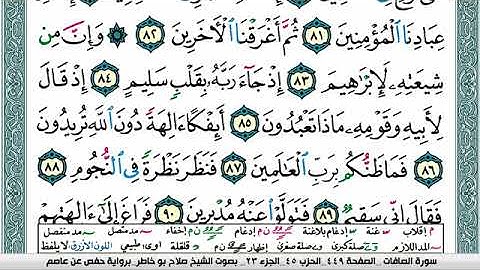 عِبَادِنَا ٱلْمُؤْمِنِينَ ٨١ ثُمَّ أَغْرَقْنَا ٱلْأَخَرِينَ ٨٢ ۞ وَإِنَّ مِن
شِيعَتِهِۦ لَإِبْرَٰهِيمَ ٨٣ إِذْ جَآءَ رَبَّهُۥ بِقَلْبٍ سَلِيمٍ ٨٤ إِذْ قَالَ
لِأَبِيهِ وَقَوْمِهِۦ مَاذَا تَعْبُدُونَ ٨٥ أَئِفْكًا ءَالِهَةً دُونَ ٱللَّهِ تُرِيدُونَ
٨٦ فَمَا ظَنُّكُم بِرَبِّ ٱلْعَٰلَمِينَ ٨٧ فَنَظَرَ نَظْرَةً فِى ٱلنُّجُومِ ٨٨
فَقَالَ إِنِّى سَقِيمٌ ٨٩ فَتَوَلَّوْا۟ عَنْهُ مُدْبِرِينَ ٩٠ فَرَاغَ إِلَىٰٓ ءَالِهَتِهِمْ
م إقلاب غنة إدغام بلاغنة ن م إدغام ن م إخفاء مد متصل مد منفصل
المد اللازم صلة كبرى صلة صغرى ن إظهار قلقلة طبيعي اللون الأزرق لا يلفظ
سورة الصافات _ الصفحة ٤٤٩_ الحزب ٤٥ _ الجزء ٢٣ _ بصوت الشيخ صلاح بو خاطر_ برواية حفص عن عاصم